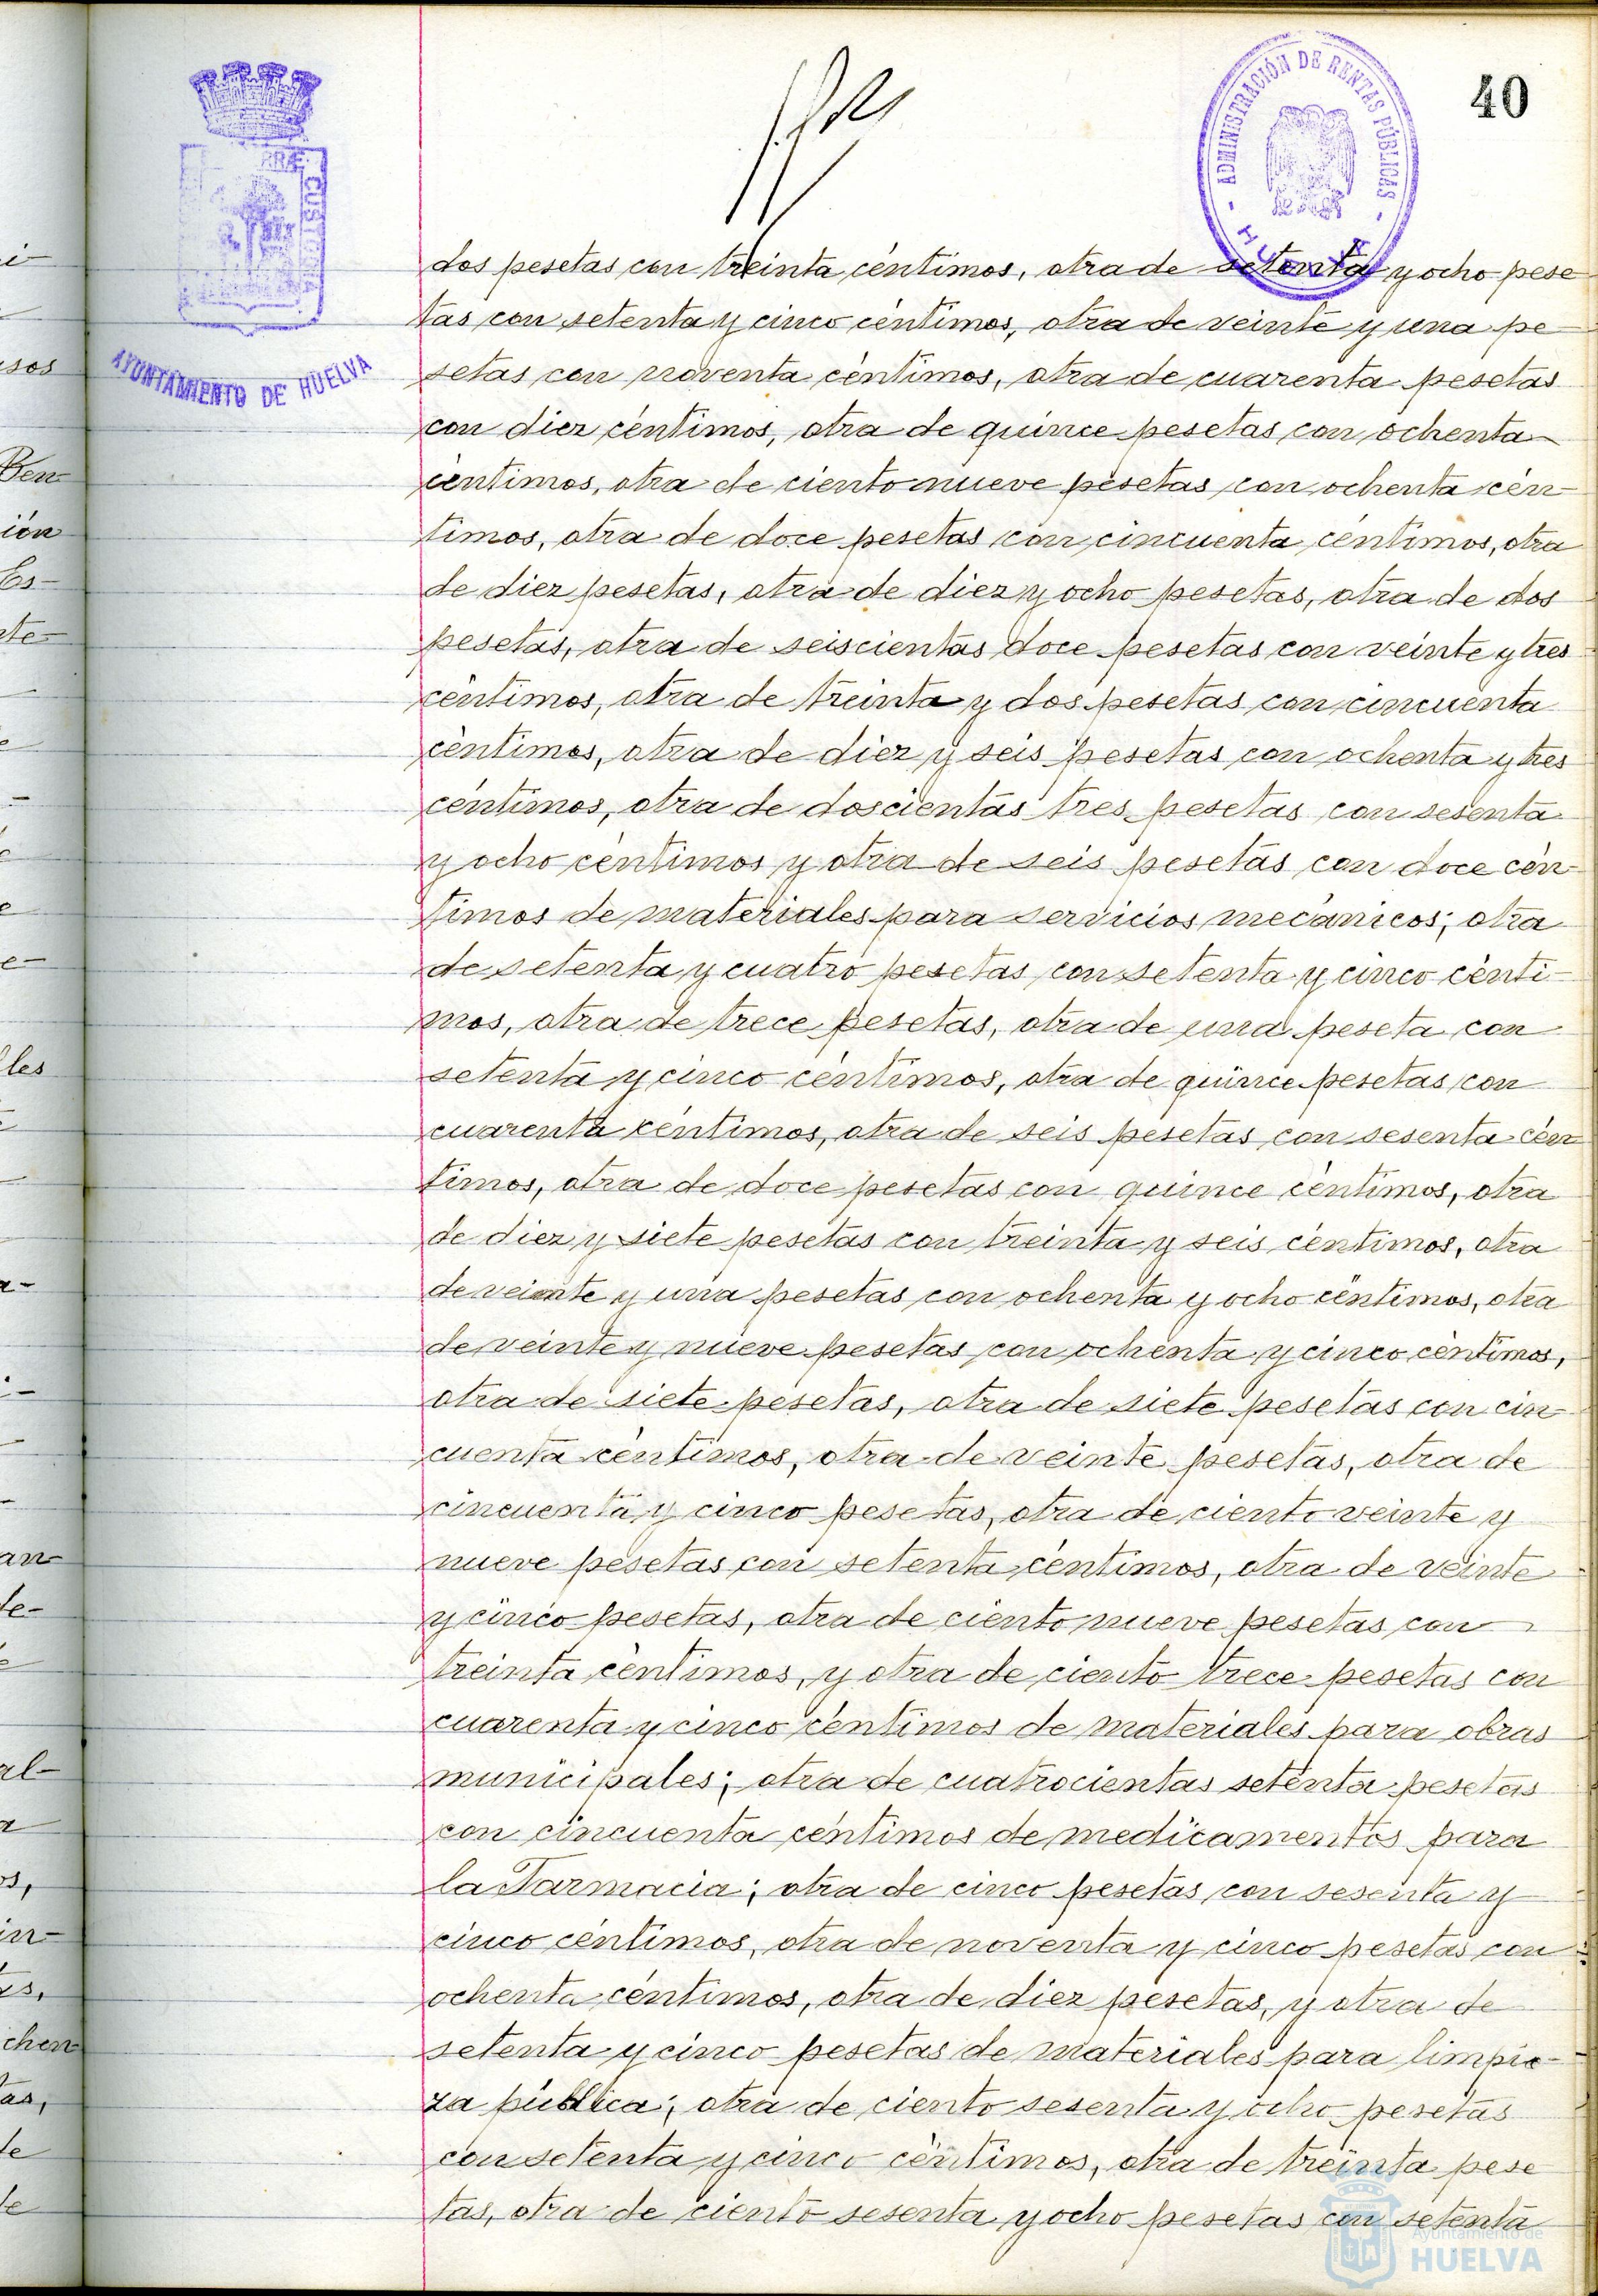 40
ADMINISTRACIÓN DE RENTAS PÚBLICAS
CUSTODIA
AYUNTAMIENTO DE HUELVA
dos pesetas con treinta céntimos, otra de setenta y ocho pese
tas con setenta y cinco céntimos, otra de veinte y una pe
setas con noventa céntimos, otra de cuarenta pesetas
con diez céntimos, otra de quince pesetas con ochenta
céntimos, otra de ciento nueve pesetas con ochenta cén-
timos, otra de doce pesetas con cincuenta céntimos, otra
de diez pesetas, otra de diez y ocho pesetas, otra de dos
pesetas, otra de seiscientas doce pesetas con veinte y tres
céntimos, otra de treinta y dos pesetas con cincuenta
céntimos, otra de diez y seis pesetas con ochenta y tres
céntimos, otra de doscientas tres pesetas con sesenta
y ocho céntimos y otra de seis pesetas con doce cén-
timos de materiales para servicios mecánicos; otra
de setenta y cuatro pesetas con setenta y cinco cénti-
mos, otra de trece pesetas, otra de una peseta con
setenta y cinco céntimos, otra de quince pesetas con
cuarenta céntimos, otra de seis pesetas con sesenta cén
timos, otra de doce pesetas con quince céntimos, otra
de diez y siete pesetas con treinta y seis céntimos, otra
de veinte y una pesetas con ochenta y ocho céntimos, otra
de veinte y nueve pesetas con ochenta y cinco céntimos,
otra de siete pesetas, otra de siete pesetas con cin-
cuenta céntimos, otra de veinte pesetas, otra de
cincuenta y cinco pesetas, otra de ciento veinte y
nueve pesetas con setenta céntimos, otra de veinte
y cinco pesetas, otra de ciento nueve pesetas con
treinta céntimos, y otra de ciento trece pesetas con
cuarenta y cinco céntimos de materiales para obras
municipales; otra de cuatrocientas setenta pesetas
con cincuenta céntimos de medicamentos para
la Farmacia; otra de cinco pesetas con sesenta y
cinco céntimos, otra de noventa y cinco pesetas con
ochenta céntimos, otra de diez pesetas, y otra de
setenta y cinco pesetas de materiales para limpie-
za pública; otra de ciento sesenta y ocho pesetas
con setenta y cinco céntimos, otra de treinta pese
tas, otra de ciento sesenta y ocho pesetas con setenta
Ayuntamiento de
HUELVA